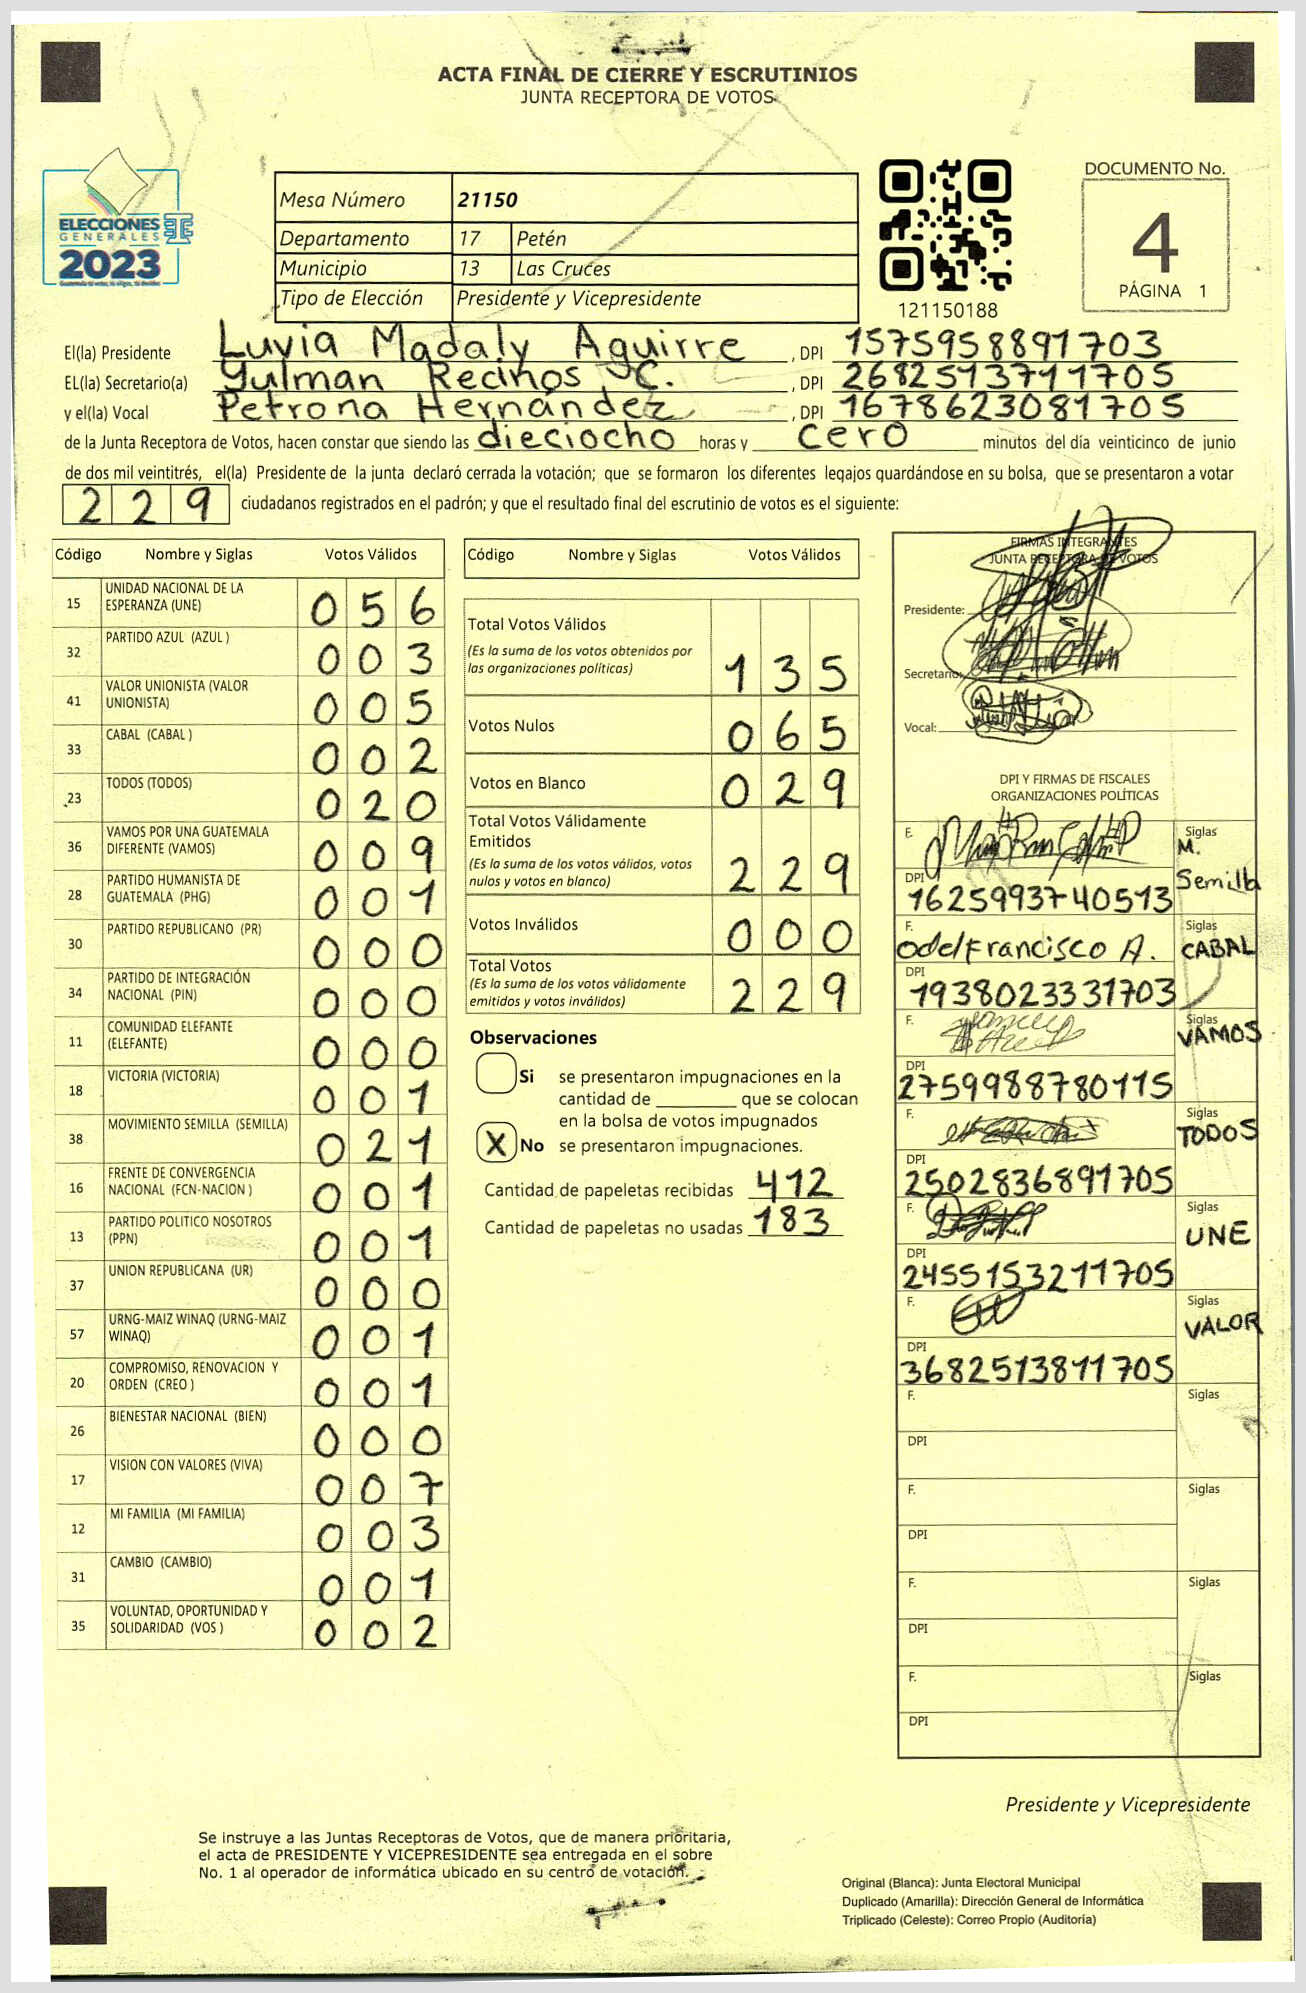 ACTA FINAL DE CIERRE Y ESCRUTINIOS
JUNTA RECEPTORA DE VOTOS
ELECCIONES
GENERALES
2023
Mesa Número 21150
Departamento 17 Petén
Municipio 13 Las Cruces
Tipo de Elección Presidente y Vicepresidente
121150188
DOCUMENTO No.
4
PÁGINA 1
El(la) Presidente Luvia Madaly Aguirre, DPI 1575958891703
EL(la) Secretario(a) Yulman Recinos C., DPI 2682513711705
y el(la) Vocal Petrona Hernández, DPI 1678623081705
de la Junta Receptora de Votos, hacen constar que siendo las dieciocho horas y cero minutos del día veinticinco de junio
de dos mil veintitrés, el(la) Presidente de la junta declaró cerrada la votación; que se formaron los diferentes legajos guardándose en su bolsa, que se presentaron a votar
229 ciudadanos registrados en el padrón; y que el resultado final del escrutinio de votos es el siguiente:
Código Nombre y Siglas Votos Válidos
15 UNIDAD NACIONAL DE LA ESPERANZA (UNE) 056
32 PARTIDO AZUL (AZUL ) 003
41 VALOR UNIONISTA (VALOR UNIONISTA) 005
33 CABAL (CABAL ) 002
23 TODOS (TODOS) 020
36 VAMOS POR UNA GUATEMALA DIFERENTE (VAMOS) 009
28 PARTIDO HUMANISTA DE GUATEMALA (PHG) 001
30 PARTIDO REPUBLICANO (PR) 000
34 PARTIDO DE INTEGRACIÓN NACIONAL (PIN) 000
11 COMUNIDAD ELEFANTE (ELEFANTE) 000
18 VICTORIA (VICTORIA) 001
38 MOVIMIENTO SEMILLA (SEMILLA) 021
16 FRENTE DE CONVERGENCIA NACIONAL (FCN-NACION ) 001
13 PARTIDO POLITICO NOSOTROS (PPN) 001
37 UNION REPUBLICANA (UR) 000
57 URNG-MAIZ WINAQ (URNG-MAIZ WINAQ) 001
20 COMPROMISO, RENOVACION Y ORDEN (CREO ) 001
26 BIENESTAR NACIONAL (BIEN) 000
17 VISION CON VALORES (VIVA) 007
12 MI FAMILIA (MI FAMILIA) 003
31 CAMBIO (CAMBIO) 001
35 VOLUNTAD, OPORTUNIDAD Y SOLIDARIDAD (VOS ) 002
Código Nombre y Siglas Votos Válidos
Total Votos Válidos 135
(Es la suma de los votos obtenidos por
las organizaciones políticas)
Votos Nulos 065
Votos en Blanco 029
Total Votos Válidamente
Emitidos 229
(Es la suma de los votos válidos, votos
nulos y votos en blanco)
Votos Inválidos 000
Total Votos 229
(Es la suma de los votos válidamente
emitidos y votos inválidos)
Observaciones
Si se presentaron impugnaciones en la
cantidad de ________ que se colocan
en la bolsa de votos impugnados
X No se presentaron impugnaciones.
Cantidad de papeletas recibidas 412
Cantidad de papeletas no usadas 183
FIRMAS INTEGRANTES
JUNTA RECEPTORA DE VOTOS
Presidente:
Secretario:
Vocal:
DPI Y FIRMAS DE FISCALES
ORGANIZACIONES POLÍTICAS
F. Siglas M. Semilla
DPI 1625993740513
F. Odelfrancisco A. Siglas CABAL
DPI 1938023331703
F. Siglas VAMOS
DPI 2759988780115
F. Siglas TODOS
DPI 2502836891705
F. Siglas UNE
DPI 2455153211705
F. Siglas VALOR
DPI 3682513811705
F. Siglas
DPI
F. Siglas
DPI
F. Siglas
DPI
F. Siglas
DPI
Presidente y Vicepresidente
Se instruye a las Juntas Receptoras de Votos, que de manera prioritaria,
el acta de PRESIDENTE Y VICEPRESIDENTE sea entregada en el sobre
No. 1 al operador de informática ubicado en su centro de votación.
Original (Blanca): Junta Electoral Municipal
Duplicado (Amarilla): Dirección General de Informática
Triplicado (Celeste): Correo Propio (Auditoría)